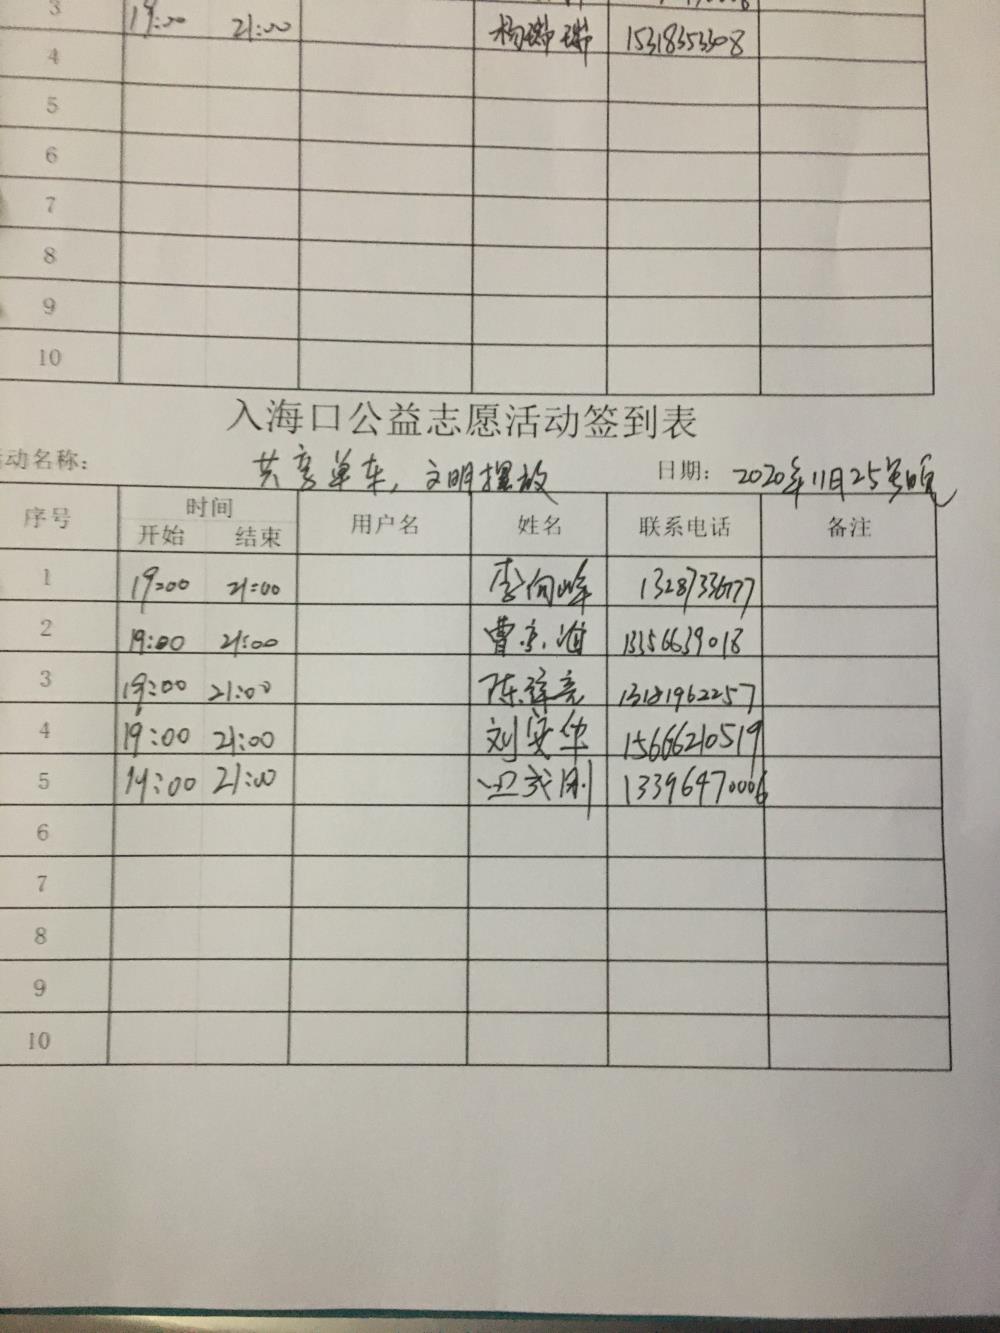 3 19:00 21:00 杨瑞瑞 15318353308
4
5
6
7
8
9
10
入海口公益志愿活动签到表
活动名称: 共享单车,文明摆放 日期: 2020年11月25号晚
序号 时间 用户名 姓名 联系电话 备注
开始 结束
1 19:00 21:00 李向峰 13287336777
2 19:00 21:00 13356639018
3 19:00 21:00 13181962257
4 19:00 21:00 刘安华 15666210519
5 19:00 21:00 13396470006
6
7
8
9
10